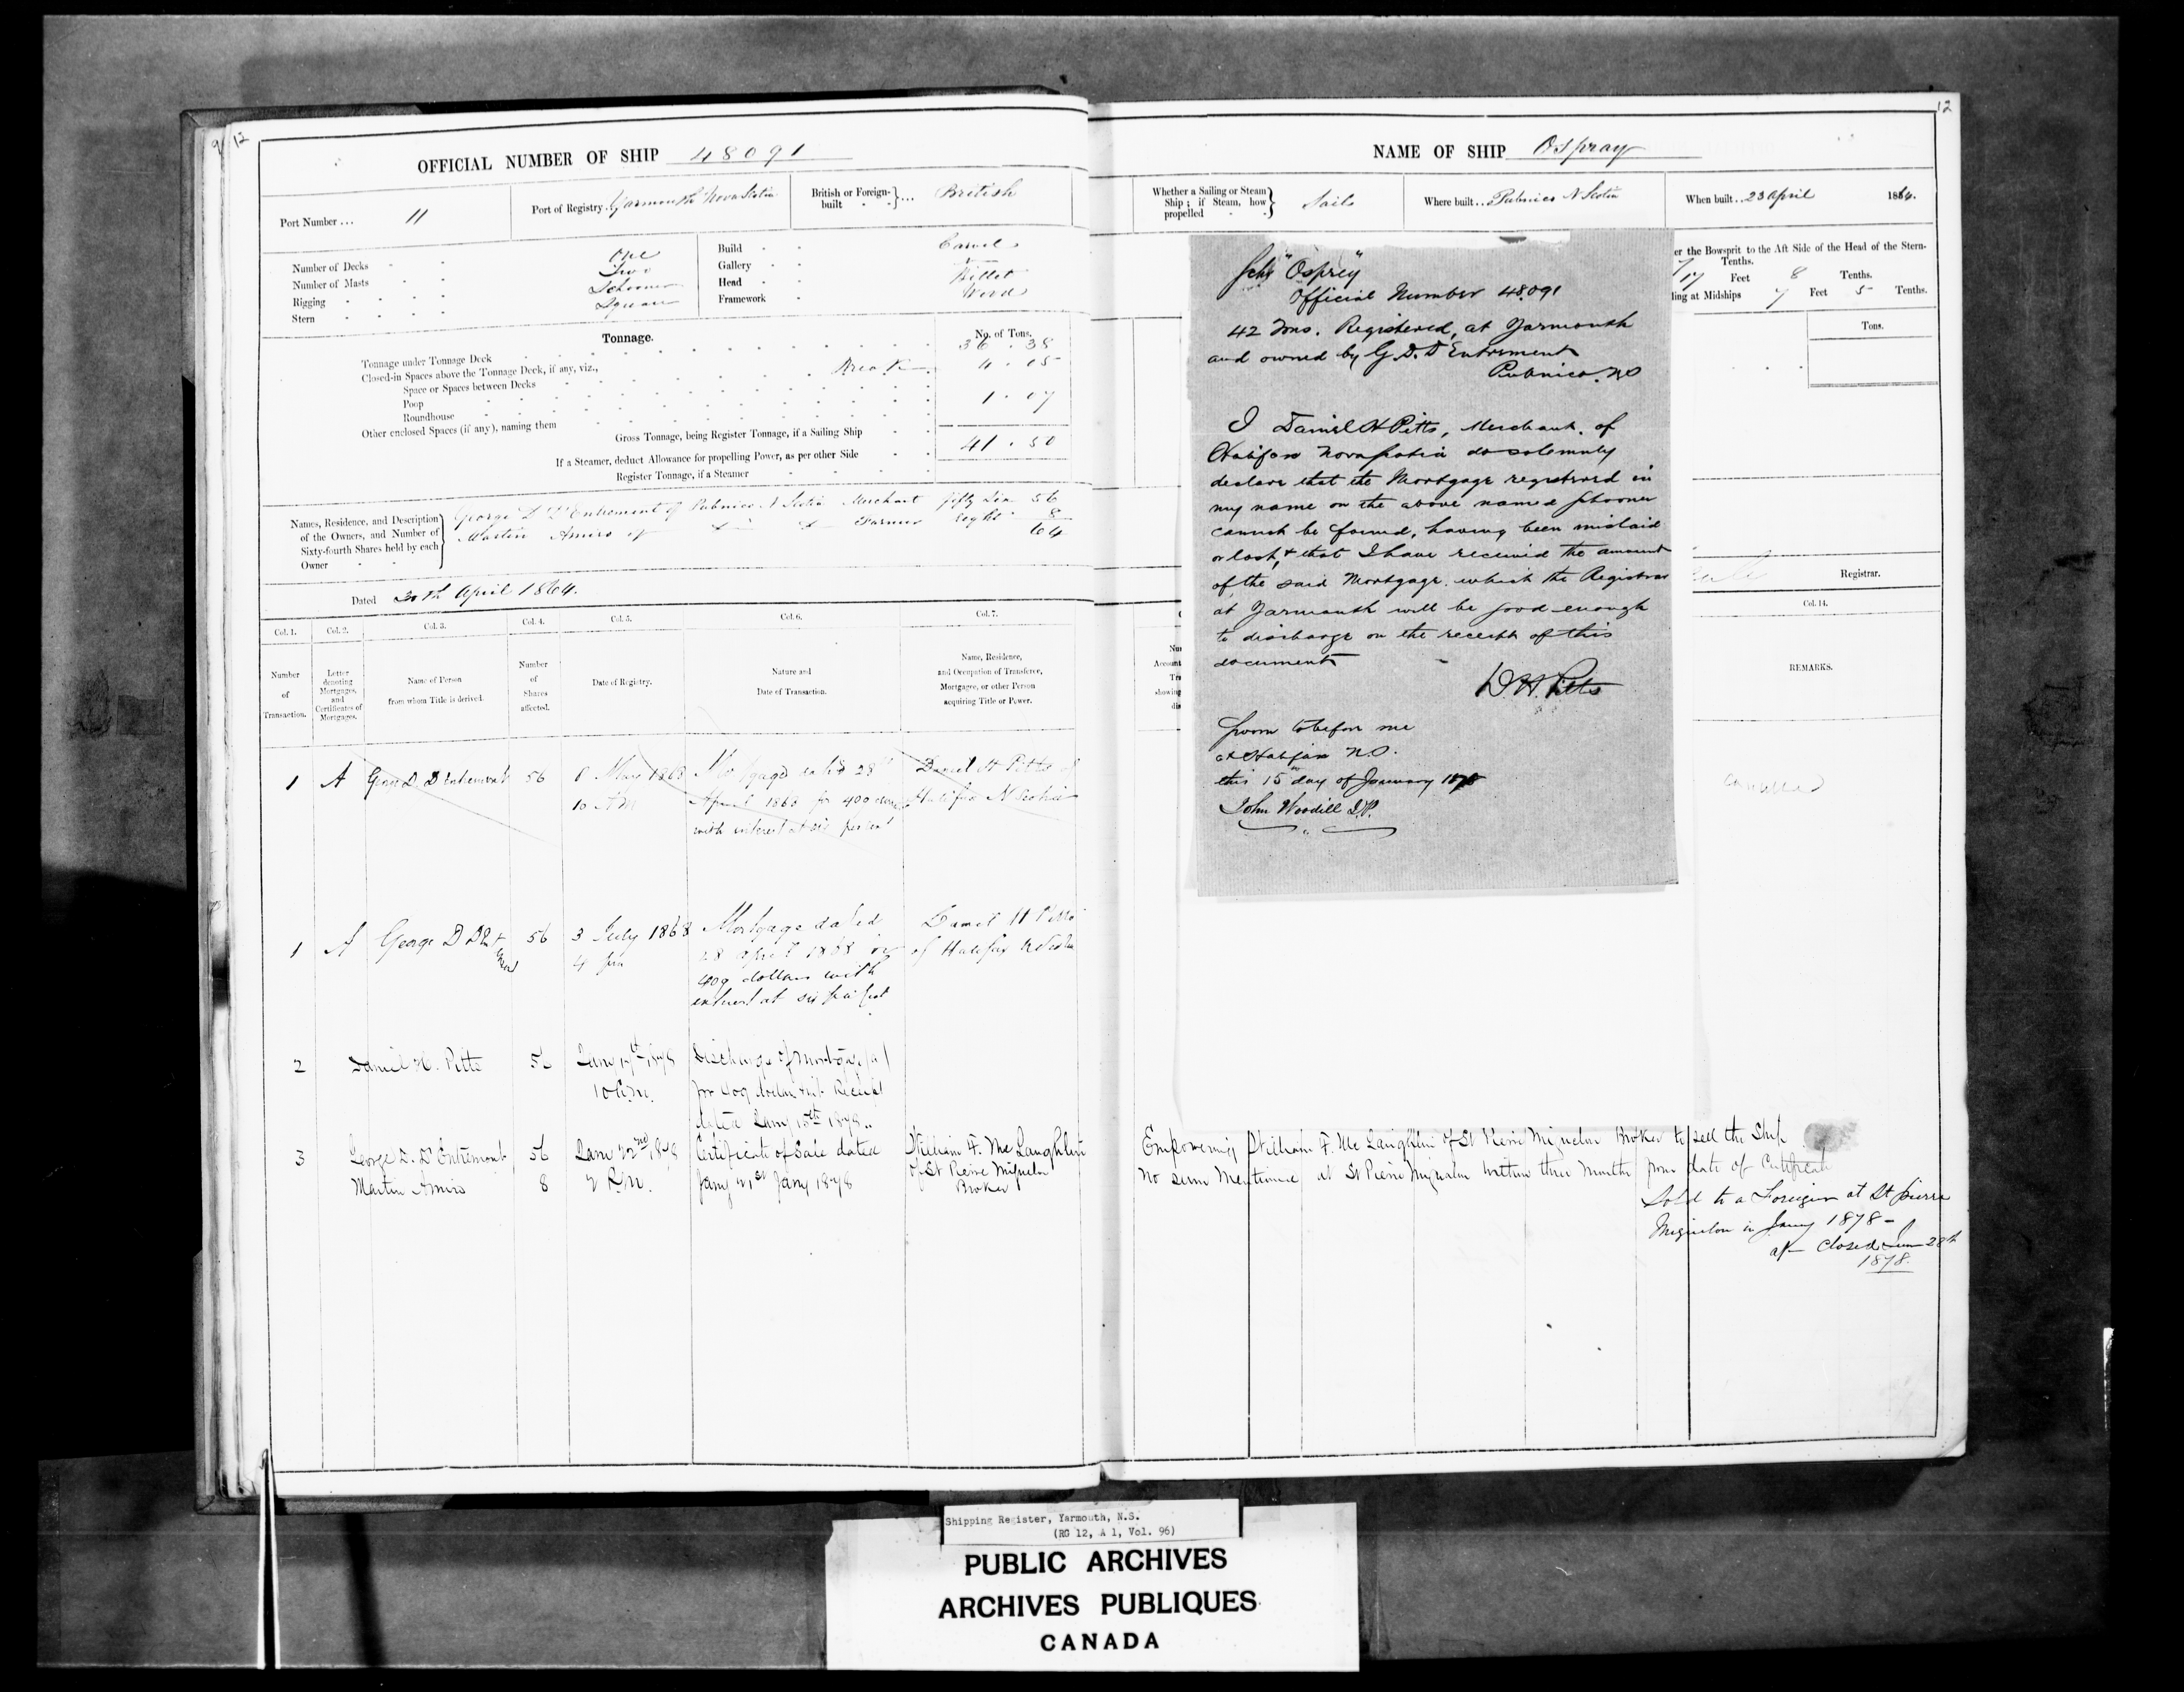 12
OFFICIAL NUMBER OF SHIP 48091
Port Number ... 11
Port of Registry. Yarmouth Nova Scotia
British or Foreign-built ... British
Number of Decks One
Number of Masts Two
Rigging Schooner
Stern Square
Build Carvel
Gallery
Head Billet
Framework Wood
Tonnage.
No. of Tons.
Tonnage under Tonnage Deck 36.38
Closed-in Spaces above the Tonnage Deck, if any, viz., Break 4.05
Space or Spaces between Decks
Poop 1.07
Roundhouse
Other enclosed Spaces (if any), naming them
Gross Tonnage, being Register Tonnage, if a Sailing Ship 41.50
If a Steamer, deduct Allowance for propelling Power, as per other Side
Register Tonnage, if a Steamer
Names, Residence, and Description of the Owners, and Number of Sixty-fourth Shares held by each Owner
George D D'Entremont of Pubnico N Scotia Merchant fifty six 56
Martin Amiro of Farmer Eight 8
64
Dated April 1864.
Col. 1. Col. 2. Col. 3. Col. 4. Col. 5. Col. 6. Col. 7.
Number of Transaction.
Letter denoting Mortgages, and Certificates of Mortgages.
Name of Person from whom Title is derived.
Number of Shares affected.
Date of Registry.
Nature and Date of Transaction.
Name, Residence, and Occupation of Transferee, Mortgagee, or other Person acquiring Title or Power.
1 A D Entremont 56
10 AM
Mortgage dated 28th
April 1868 for 409
with interest at six per cent
Daniel H Pitts of
Halifax N Scotia
1 A George D 56 3 July 1868
4 pm
Mortgage dated
28 April 1868 for
409 dollars with
interest at six per cent
Daniel H Pitts
of Halifax N Scotia
2 Daniel H. Pitts 56 Jany 17th 1878
10 A.M.
Discharge of Mortgage (A)
for 409 dollars Receipt
dated Jany 15th 1878
3 George D. D'Entremont 56 Jany 22nd 1878
Martin Amiro 8 2 P.M.
Certificate of Sale dated
Jany 21st Jany 1878
William F. McLaughlin
of St Pierre Miquelon
Broker
12
NAME OF SHIP Ospray
Whether a Sailing or Steam Ship; if Steam, how propelled Sail
Where built .. Pubnico N Scotia
When built .. 23 April 1864.
er the Bowsprit to the Aft Side of the Head of the Stern-
Tenths.
17 Feet 8 Tenths.
ling at Midships 7 Feet 5 Tenths.
Tons.
Registrar.
Col. 14.
REMARKS.
cancelled
Schr "Osprey"
Official Number 48.091
42 Tons. Registered, at Yarmouth
and owned by G. D. D'Entremont
Pubnico. NS
I Daniel H Pitts, Merchant. of
Halifax Nova Scotia do solemnly
declare that the Mortgage registered in
my name on the above named Schooner
cannot be found, having been mislaid
or lost, & that I have received the amount
of the said Mortgage. which the Registrar
at Yarmouth will be good enough
to discharge on the receipt of this
document
D. H. Pitts
Sworn to before me
at Halifax N.S.
this 15 day of January 1878
John Woodill J.P.
Empowering William F. McLaughlin of St Pierre Miquelon Broker to sell the Ship
No sum Mentioned at St Pierre Miquelon within three Months from date of Certificate
Sold to a Foreigner at St pierre
Miquelon in Jany 1878 -
Closed 28th
1878.
Shipping Register, Yarmouth, N.S.
(RG 12, A 1, Vol. 96)
PUBLIC ARCHIVES
ARCHIVES PUBLIQUES
CANADA